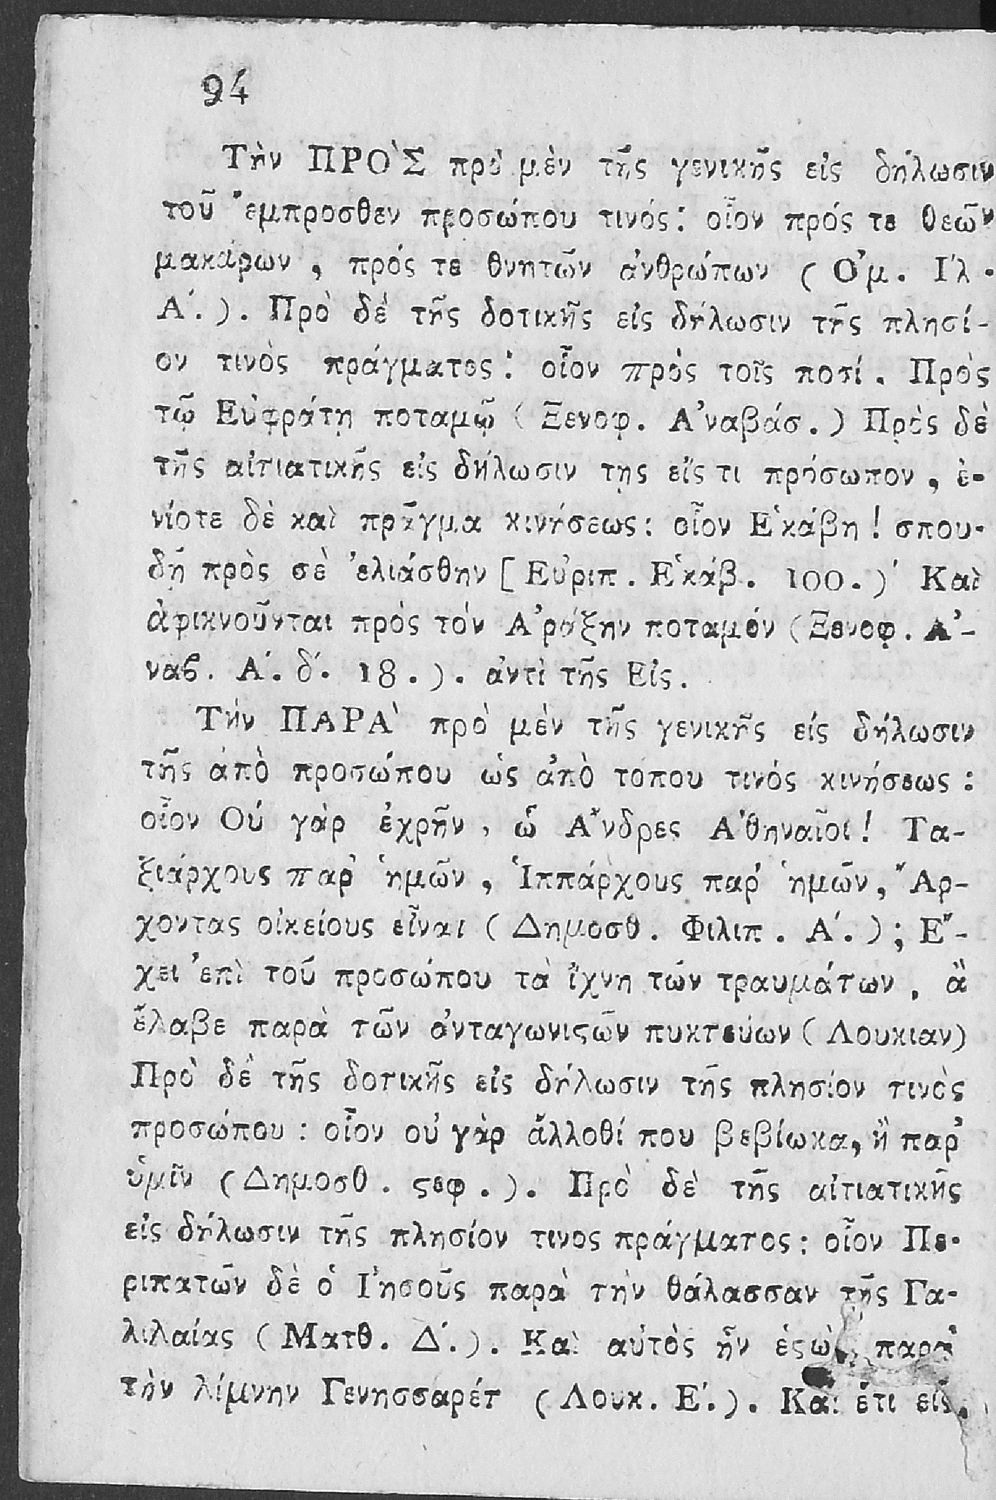 94
Τὴν ΠΡΟ`Σ πρὸ μὲν τῆς γενικῆς εἰς δήλωσιν
τοῦ ἔμπροσθεν προσώπου τινός: οἷον πρός τε θεῶν
μακάρων, πρός τε θνητῶν ἀνθρώπων (Ὁμ. Ἰλ.
Α΄.). Πρὸ δὲ τῆς δοτικῆς εἰς δήλωσιν τῆς πλησί-
ον τινὸς πράγματος: οἷον πρὸς τοῖς ποσί. Πρὸς
τῷ Εὐφράτῃ ποταμῷ (Ξενοφ. Ἀναβάσ.) Πρὸς δὲ
τῆς αἰτιατικῆς εἰς δήλωσιν της εἴς τι πρόσωπον, ἐ-
νίοτε δὲ καὶ πρᾶγμα κινήσεως: οἷον Ἑκάβη! σπου-
δῇ πρὸς σὲ ἐλιάσθην [Εὐριπ. Ἑκάβ. 100.) Καὶ
ἀφικνοῦνται πρὸς τὸν Ἀράξην ποταμόν (Ξενοφ. Ἀ-
ναβ. Α΄. δ΄. 18.). ἀντὶ τῆς Εἰς.
Τὴν ΠΑΡΑ` πρὸ μὲν τῆς γενικῆς εἰς δήλωσιν
τῆς ἀπὸ προσώπου ὡς ἀπὸ τόπου τινός κινήσεως:
οἷον Οὐ γὰρ ἐχρῆν, ὦ Ἄνδρες Ἀθηναῖοι! Τα-
ξιάρχους παρ' ἡμῶν, Ἱππάρχους παρ' ἡμῶν, Ἄρ-
χοντας οἰκείους εἶναι (Δημοσθ. Φιλιπ. Α΄.); Ἔ-
χει ἐπὶ τοῦ προσώπου τὰ ἴχνη τῶν τραυμάτων, ἃ
ἔλαβε παρὰ τῶν ἀνταγωνιςῶν πυκτεύων (Λουκιαν)
Πρὸ δὲ τῆς δοτικῆς εἰς δήλωσιν τῆς πλησίον τινὸς
προσώπου: οἷον οὐ γὰρ ἄλλοθί που βεβίωκα, ἢ παρ'
ὑμῖν (Δημοσθ. ςεφ.). Πρὸ δὲ τῆς αἰτιατικῆς
εἰς δήλωσιν τῆς πλησίον τινος πράγματος: οἷον Πε-
ριπατῶν δὲ ὁ Ἰησοῦς παρὰ τὴν θάλασσαν τῆς Γα-
λιλαίας (Ματθ. Δ΄.). Καὶ αὐτὸς ἦν ἑςὼς παρὰ
τὴν λίμνην Γενησσαρέτ (Λουκ. Ε΄.). Καὶ ἔτι εἰς